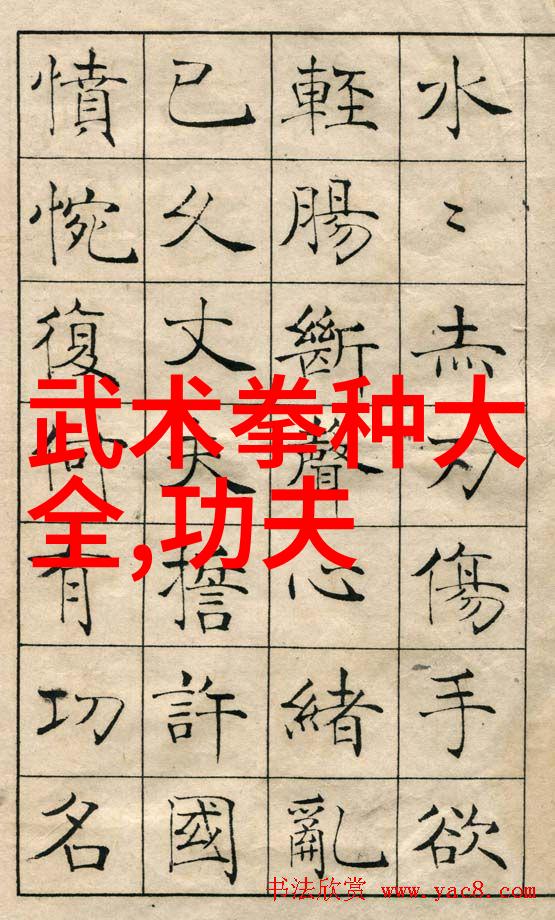 水〻赤刃傷手欲
輕腸斷聲心緒亂
已久丈夫誓許國
憤惋復何有功名
武术拳种大
全,功夫
书法欣赏 www.yac8.com